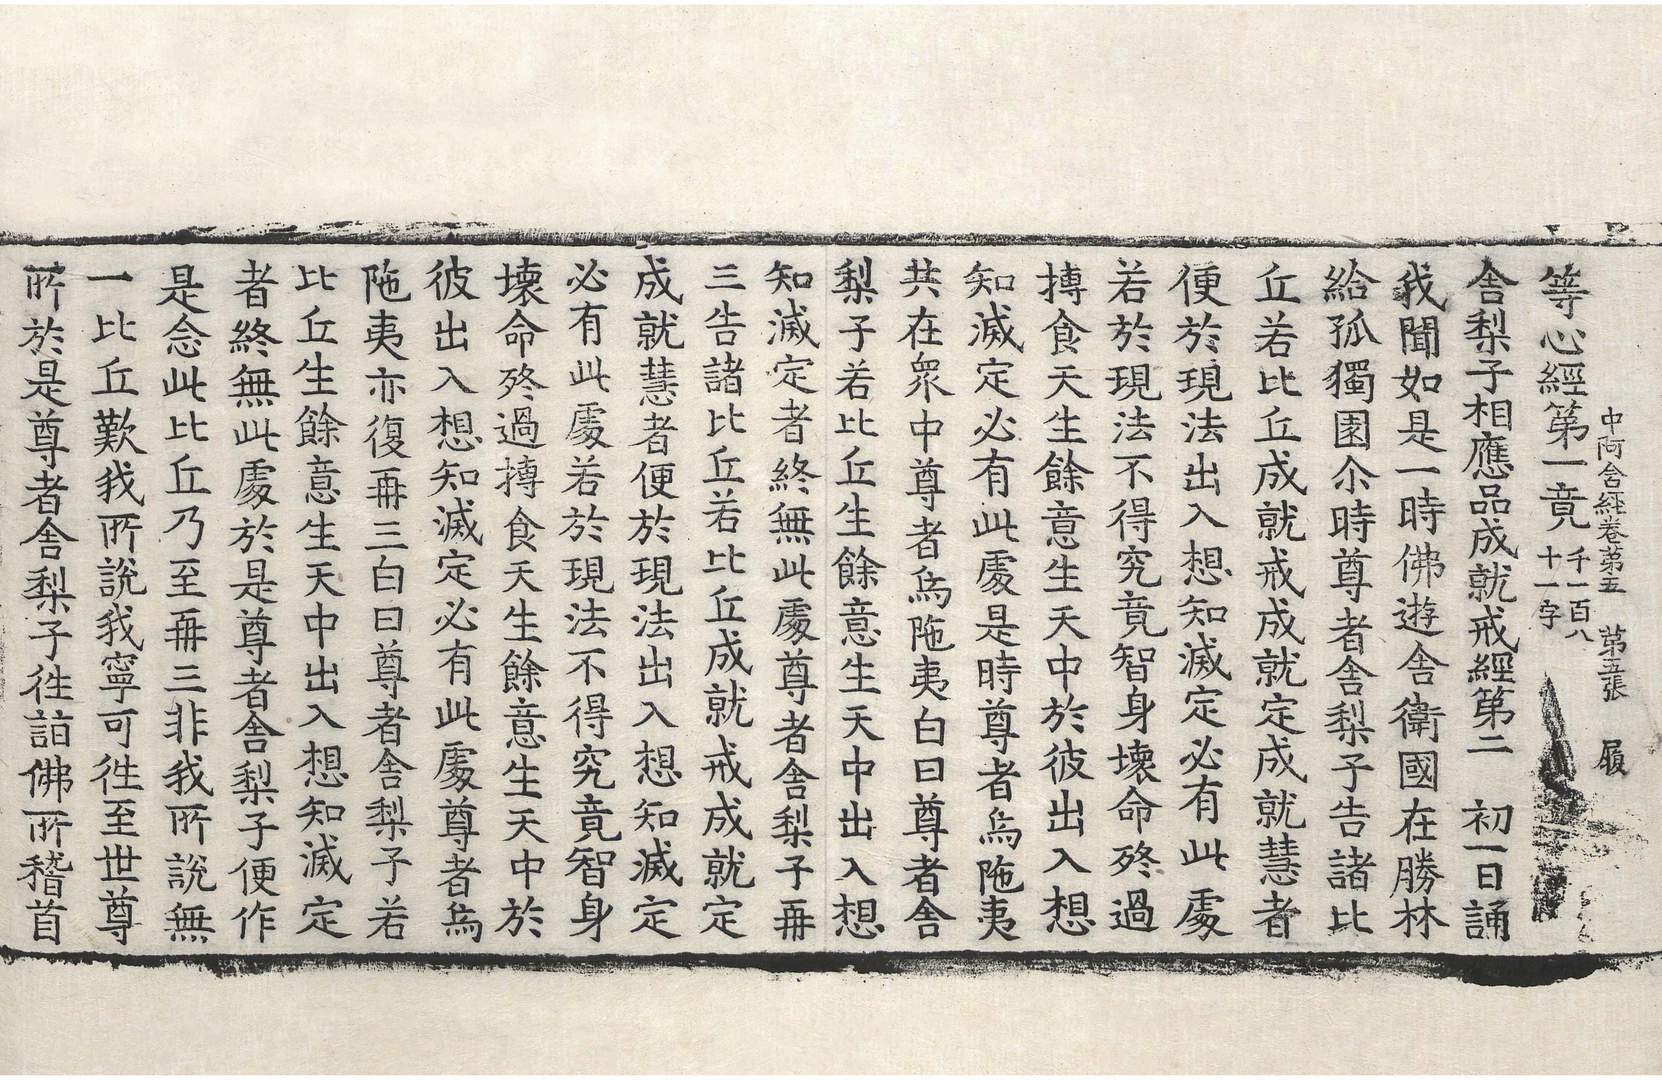 中阿含經卷苐五　苐五張　履
等心經苐一竟千一百八十一字
舍梨子相應品成就戒經苐二　初一日誦
我聞如是一時佛遊舍衛國在勝林
給孤獨園尒時尊者舍梨子告諸比
丘若比丘成就戒成就定成就慧者
便於現法出入想知滅定必有此處
若於現法不得究竟智身壞命終過
摶食天生餘意生天中於彼出入想
知滅定必有此處是時尊者烏陁夷
共在衆中尊者烏陁夷白曰尊者舍
梨子若比丘生餘意生天中出入想
知滅定者終無此處尊者舍梨子再
三告諸比丘若比丘成就戒成就定
成就慧者便於現法出入想知滅定
必有此處若於現法不得究竟智身
壞命終過摶食天生餘意生天中於
彼出入想知滅定必有此處尊者烏
陁夷亦復再三白曰尊者舍梨子若
比丘生餘意生天中出入想知滅定
者終無此處於是尊者舍梨子便作
是念此比丘乃至再三非我所說無
一比丘歎我所說我寧可往至世尊
所於是尊者舍梨子往詣佛所稽首